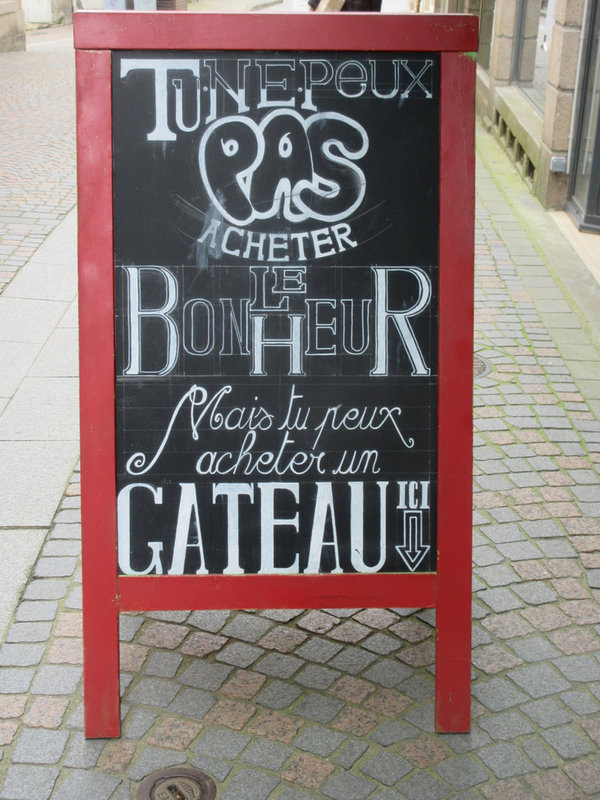 TU NE Peux
PAS
ACHETER
LE
BONHEUR
Mais tu peux
acheter un
GATEAU ICI